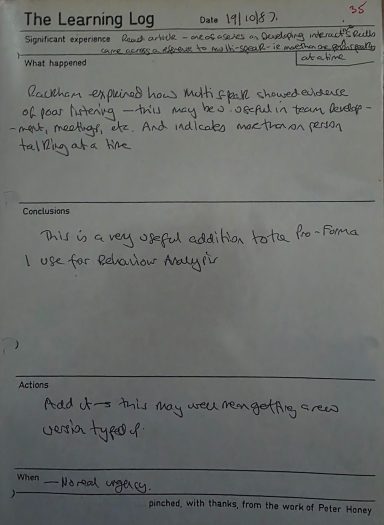 35
The Learning Log Date 19/10/87.
Significant experience Read article - one of a series on Developing interactive skills
came across a reference to multi-speak - ie more than one person speaking
at a time
What happened
Rackham explained how multi speak showed evidence
of poor listening - this may be v. useful in team develop-
-ment, meetings, etc. And indicates more than on person
talking at a time
Conclusions
This is a very useful addition to the Pro-Forma
I use for Behaviour Analysis
Actions
Add it → this may well mean getting a new
version typed up.
When - No real urgency.
pinched, with thanks, from the work of Peter Honey